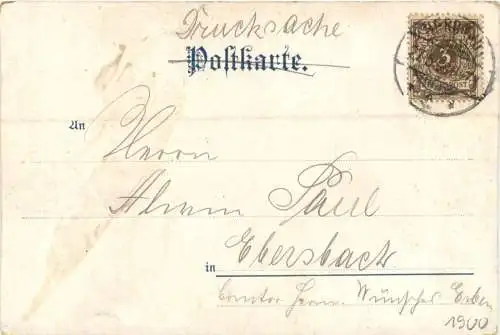 Drucksache
Postkarte.
An
Herrn
Alwin Paul
Ebersbach
in
Comtor Herm. Wünsches Erben
1900
3